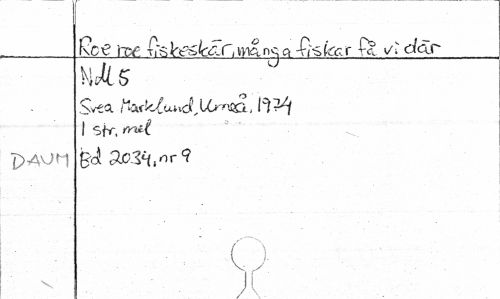 Roe roe fiskeskär, många fiskar få vi där
NM 5
Svea Marklund, Umeå, 1974
1 str, mel
DAUM Bd 2034, nr 9